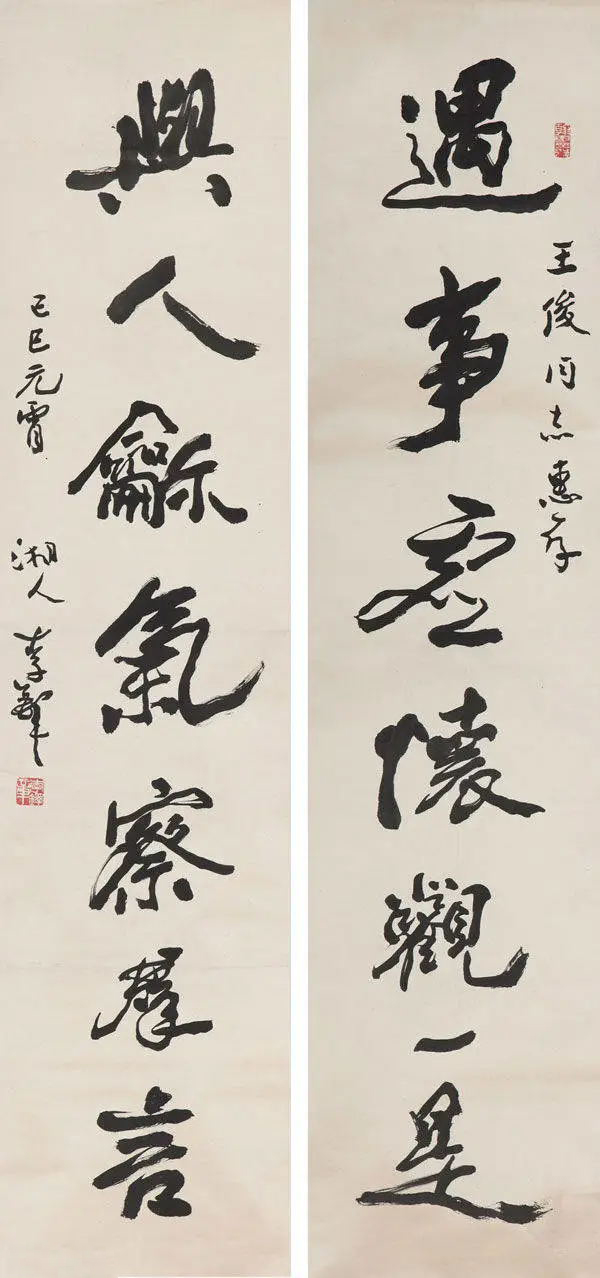 王俊同志惠存
遇事虛懷觀一是
與人龢氣察羣言
己巳元宵
湘人李鐸